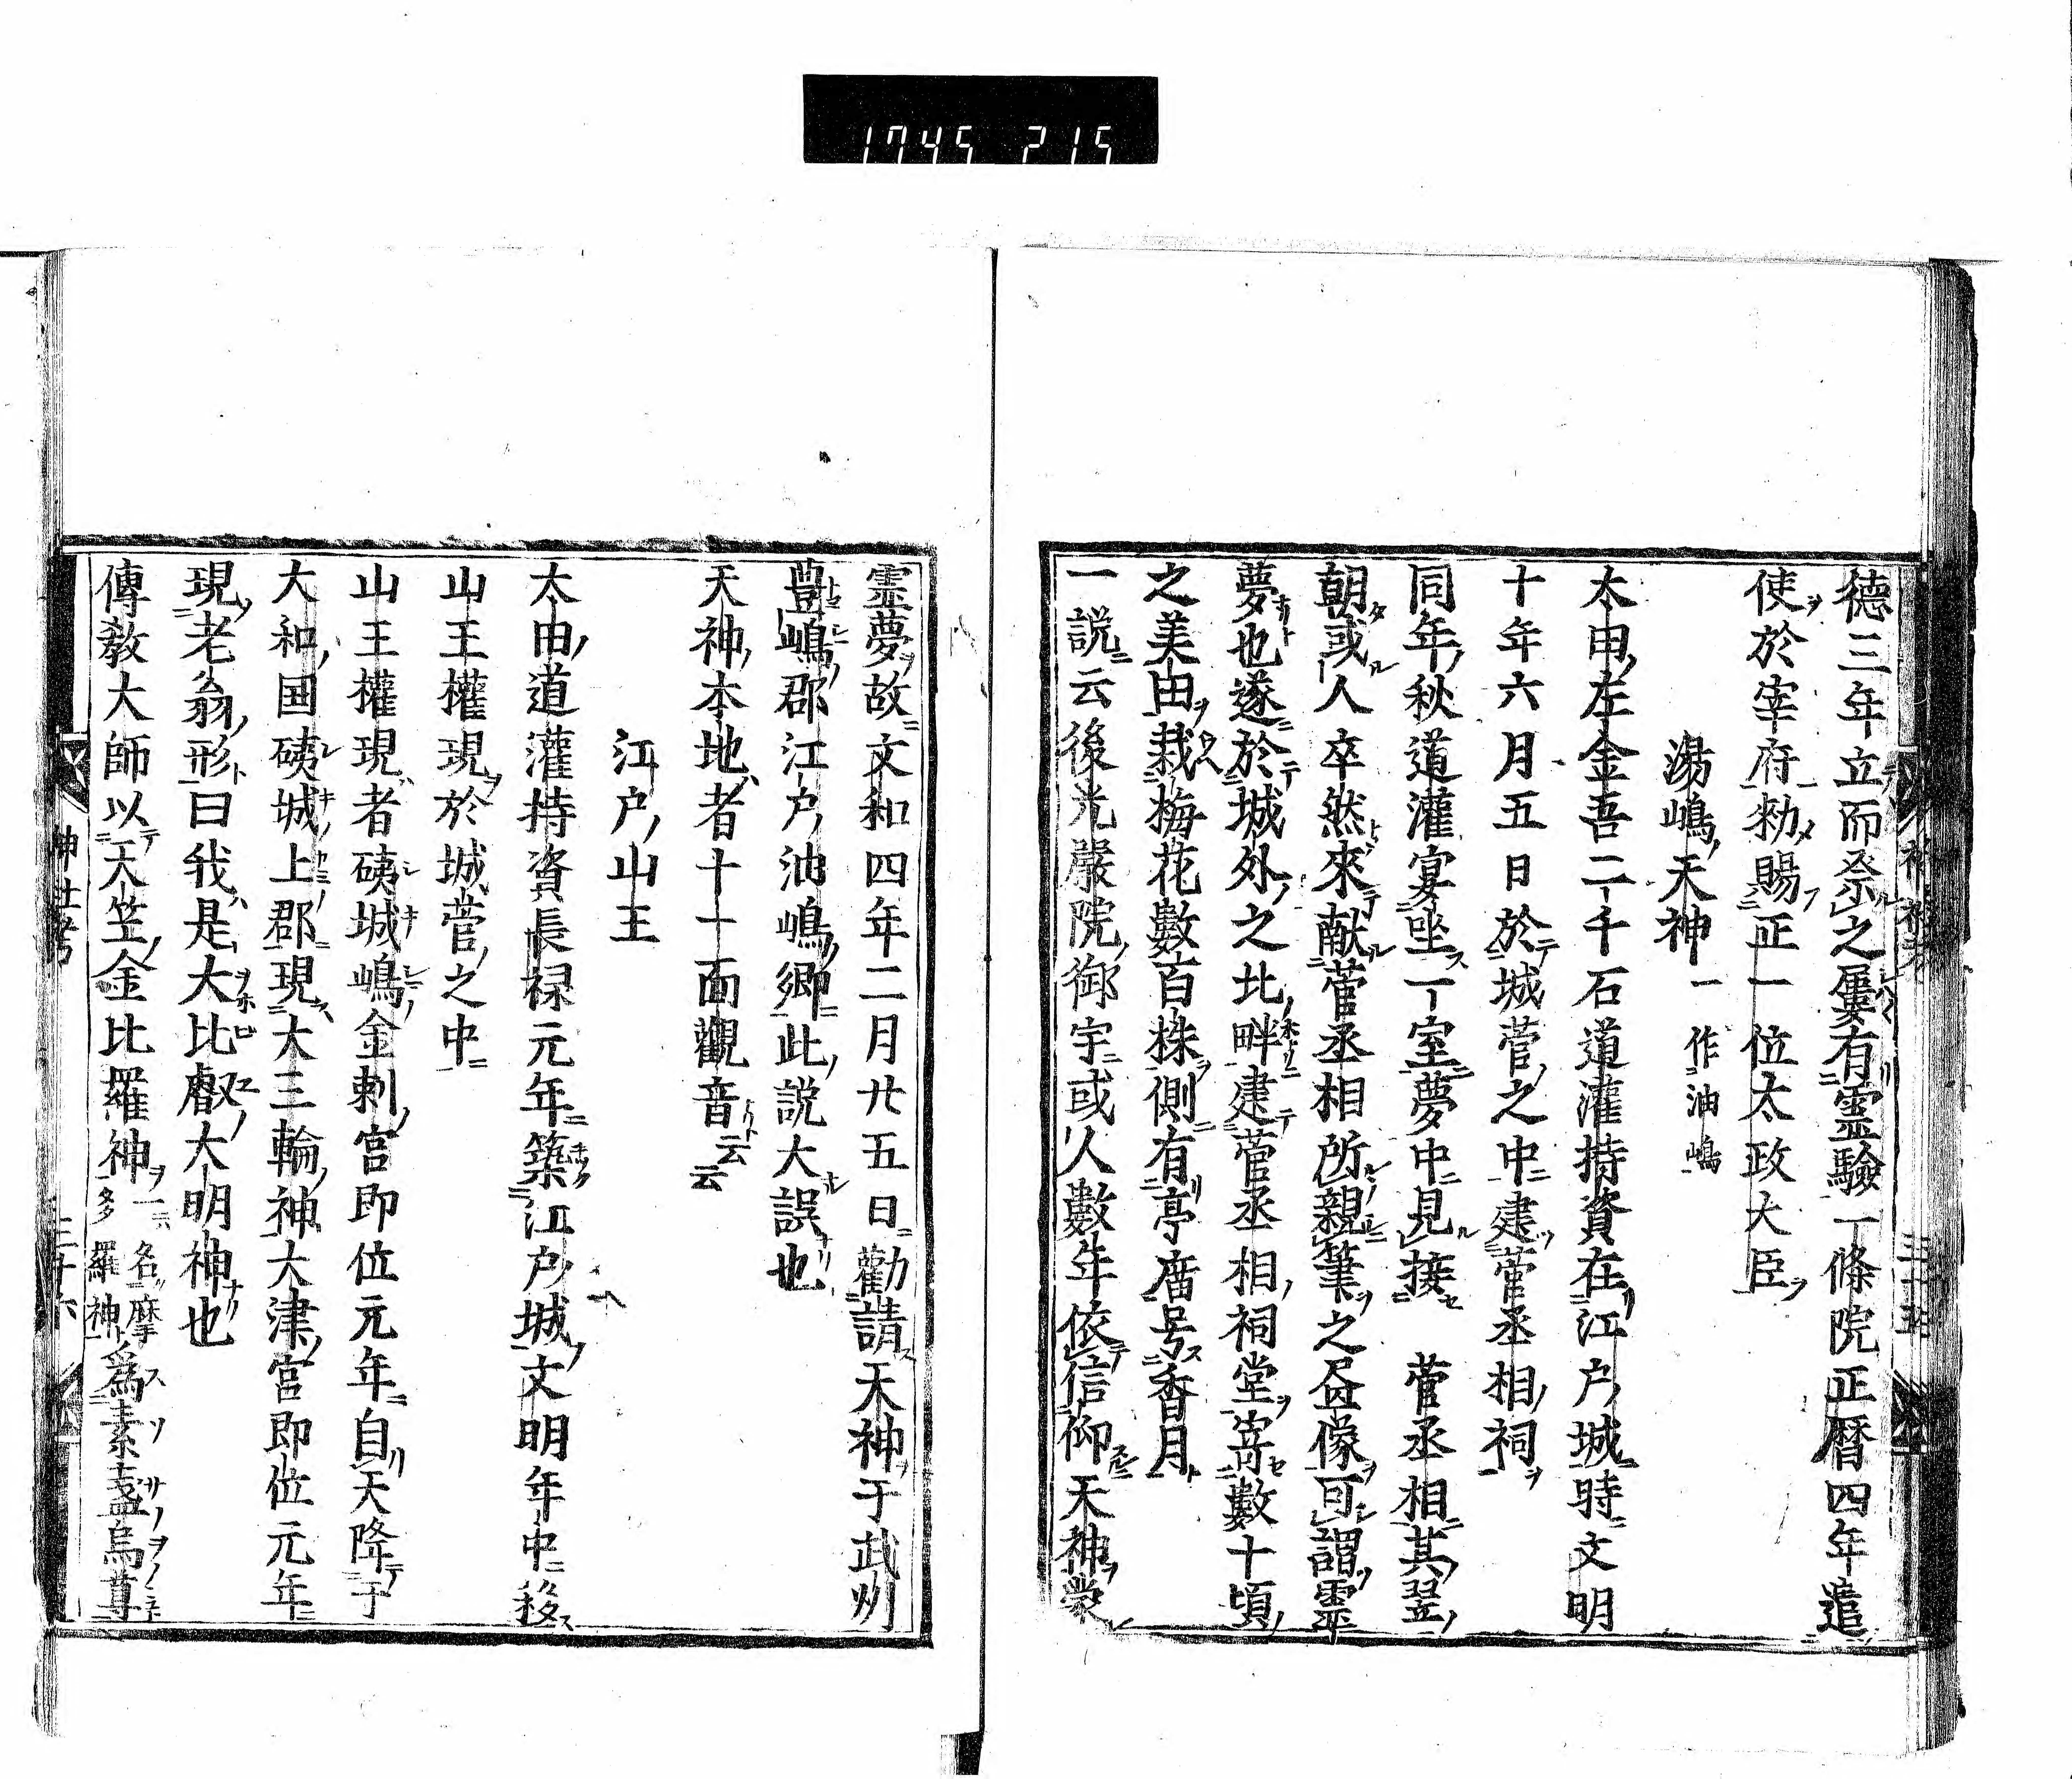 1745 215
德三年立而祭之屢有靈驗一條院正暦四年遣
使於宰府勅賜正一位太政大臣
湯嶋天神 一作油嶋
太田左金吾二千石道灌持資在江户城時文明
十年六月五日於城菅之中建菅丞相祠
同年秋道灌宴坐一室夢中見接 菅丞相其翌
朝或人卒然來献菅丞相所親筆之畫像可謂靈
夢也遂於城外之北畔建菅丞相祠堂寄數十頃
之美田栽梅花數百株側有亭扁号香月
一説云後光嚴院御宇或人數年依信仰天神蒙
靈夢故文和四年二月廿五日勸請天神于武州
豊嶋郡江户油嶋郷此説大誤也
天神本地者十一面觀音云云
江户山王
太田道灌持資長禄元年築江户城文明年中移
山王權現於城菅之中
山王權現者磯城嶋金刺宮即位元年自天降于
大和国磯城上郡現大三輪神大津宮即位元年
現老翁形曰我是大比叡大明神也
傳教大師以天竺金比羅神一名摩多羅神爲素盞烏尊
神社考